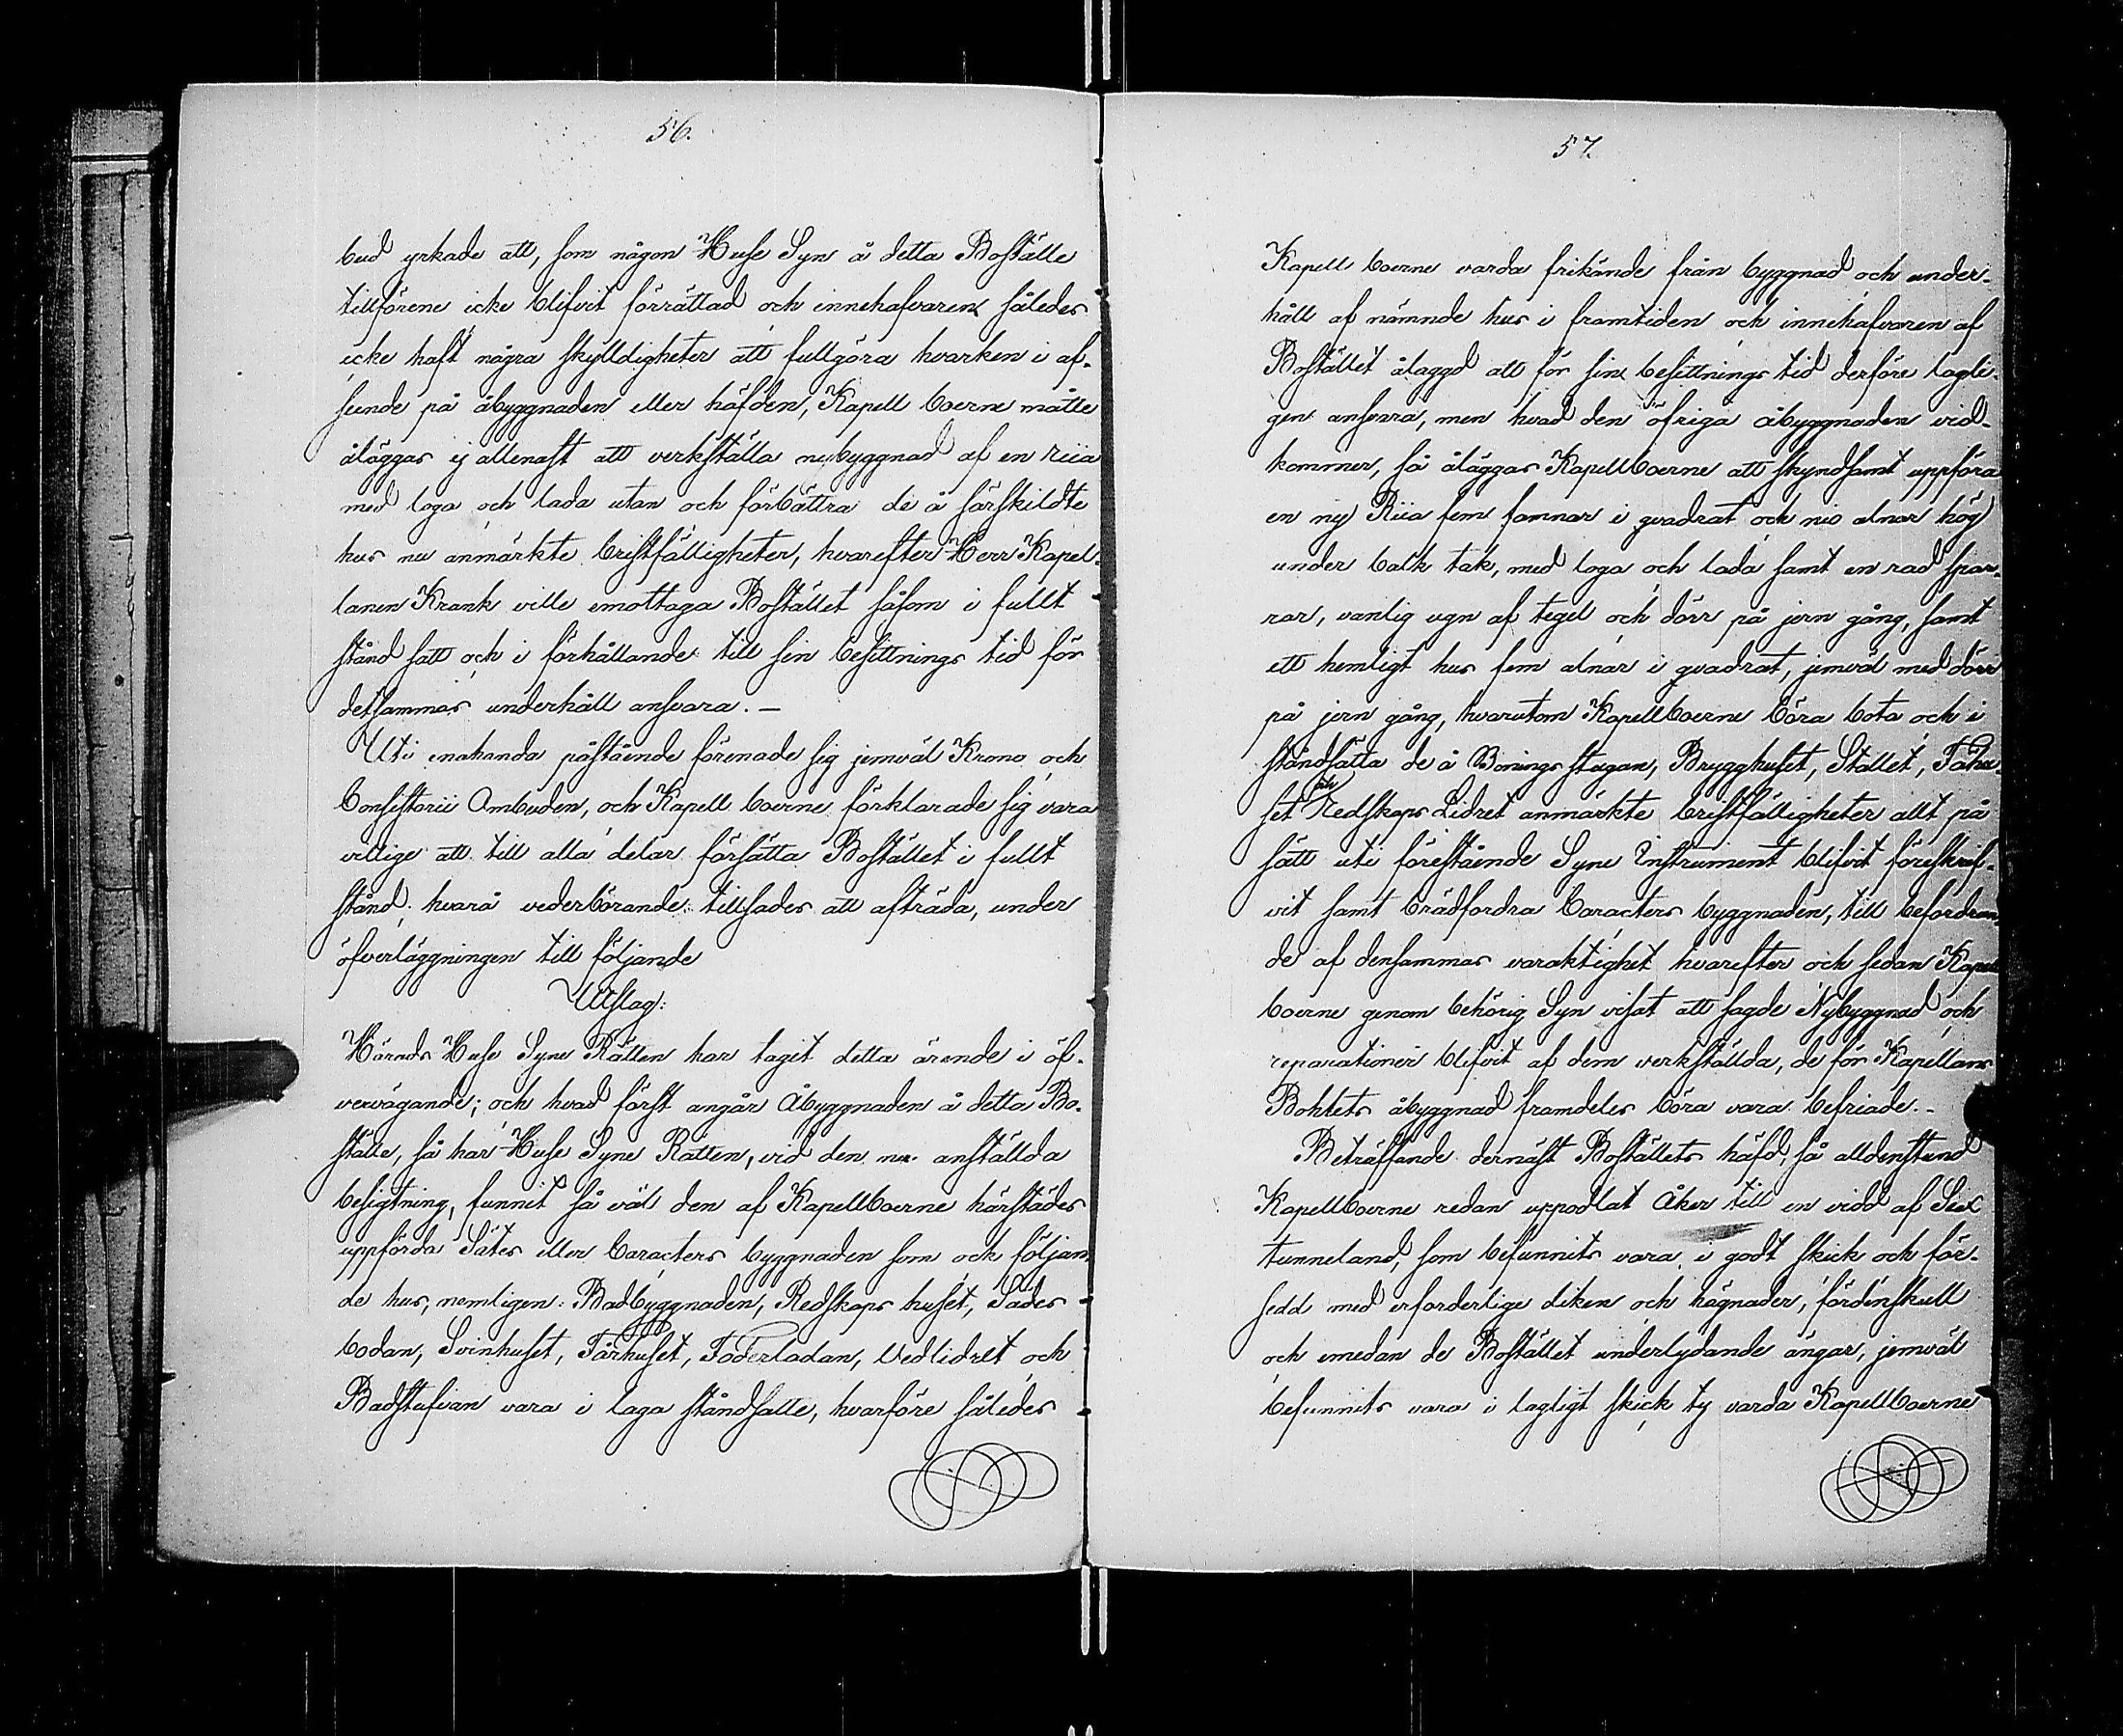 56.
bud yrkade att, som någon Huse Syn å detta Boställe
tillförene icke blifvit förrättad och innehafvaren således
icke haft några skylldigheter att fullgöra hvarken i af-
seende på åbyggnaden eller häfden, Kapell boerne måtte
åläggas ej allenast att verkställa nybyggnad af en riia
med loga och lada utan och förbättra de å särskildte
hus nu anmärkte bristfälligheter, hvarefter Herr Kapel-
lanen Krank ville emottaga Bostället såsom i fullt
stånd satt och i förhållande till sin besittnings tid för
detsammas underhåll ansvara. —
Uti enahanda påstående förenade sig jemväl Krono och
Consistorii Ombuden, och Kapell boerne förklarade sig vara
villige att till alla delar försätta Bostället i fullt
stånd; hvarå vederbörande tillsades att afträda, under
öfverläggningen till följande
Utslag:
Härads Huse Syne Rätten har tagit detta ärende i öf-
vervägande; och hvad först angår Åbyggnaden å detta Bo-
ställe, så har Huse Syne Rätten, vid den nu anställda
besigtning, funnit så väl den af Kapellboerne härstädes
uppförda Sätes eller Caracters byggnaden som ock följan-
de hus, nemligen: Badbyggnaden, Redskaps huset, Sädes-
bodan, Svinhuset, Fårhuset, Foderladan, Vedlidret och
Badstufvan vara i laga ståndsatte, hvarföre således
57.
Kapell boerne varda frikände från byggnad och under-
håll af nämnde hus i framtiden och innehafvaren af
Bostället ålaggd att för sin besittnings tid derföre lagli-
gen ansvara, men hvad den öfriga åbyggnaden vid-
kommer, så åläggas Kapellboerne att skyndsamt uppföra
en ny Riia fem famnar i qvadrat och nio alnar hög
under balk tak, med loga och lada samt en rad spar-
rar, vanlig ugn af tegel och dörr på jern gång, samt
ett hemligt hus fem alnar i qvadrat, jemväl med dörr
på jern gång, hvarutom Kapellboerne böra bota och i
ståndsätta de å Boningsstugan, Brygghuset, Stallet, Fähu-
set Redskaps Lidret anmärkte bristfälligheter allt på
sätt uti föreståénde Syne Instrument blifvit föreskrif-
vit samt brädfordra Caracters byggnaden, till befordran-
de af densammas varaktighet hvarefter och sedan Kapell
boerne genom behörig Syn visat att sagde Nybyggnad och
reparationer blifvit af dem verkställda, de för Kapellans
Bohlets åbyggnad framdeles böra vara befriade. -
Beträffande dernäst Boställets häfd, så alldenstund
Kapellboerne redan uppodlat Åker till en vidd af Sex
tunneland, som befunnits vara i godt skick och för-
sedd med erforderlige diken och hägnader, fördenskull
och emedan de Bostället underlydande ängar, jemväl
befunnits vara i lagligt skick ty varda Kapellboerne